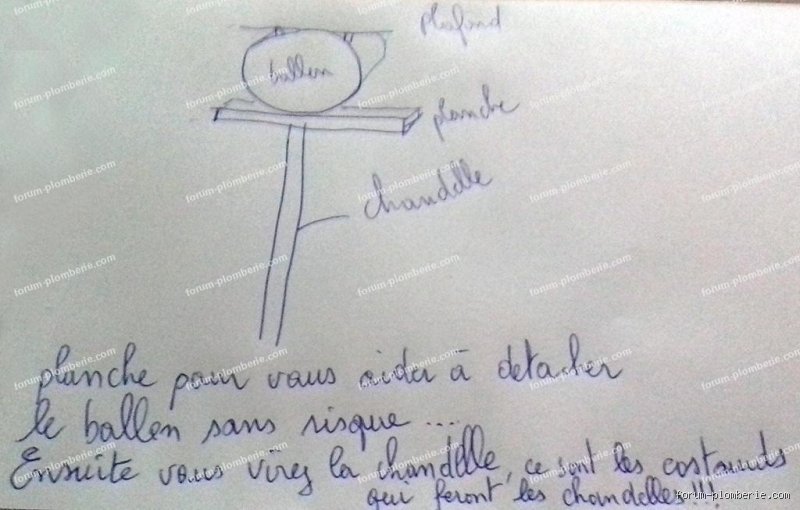 plafond
ballon
planche
chandelle
planche pour vous aider à detacher
le ballon sans risque ....
Ensuite vous virez la chandelle, ce sont les costauds
qui feront les chandelles !!!
forum-plomberie.com